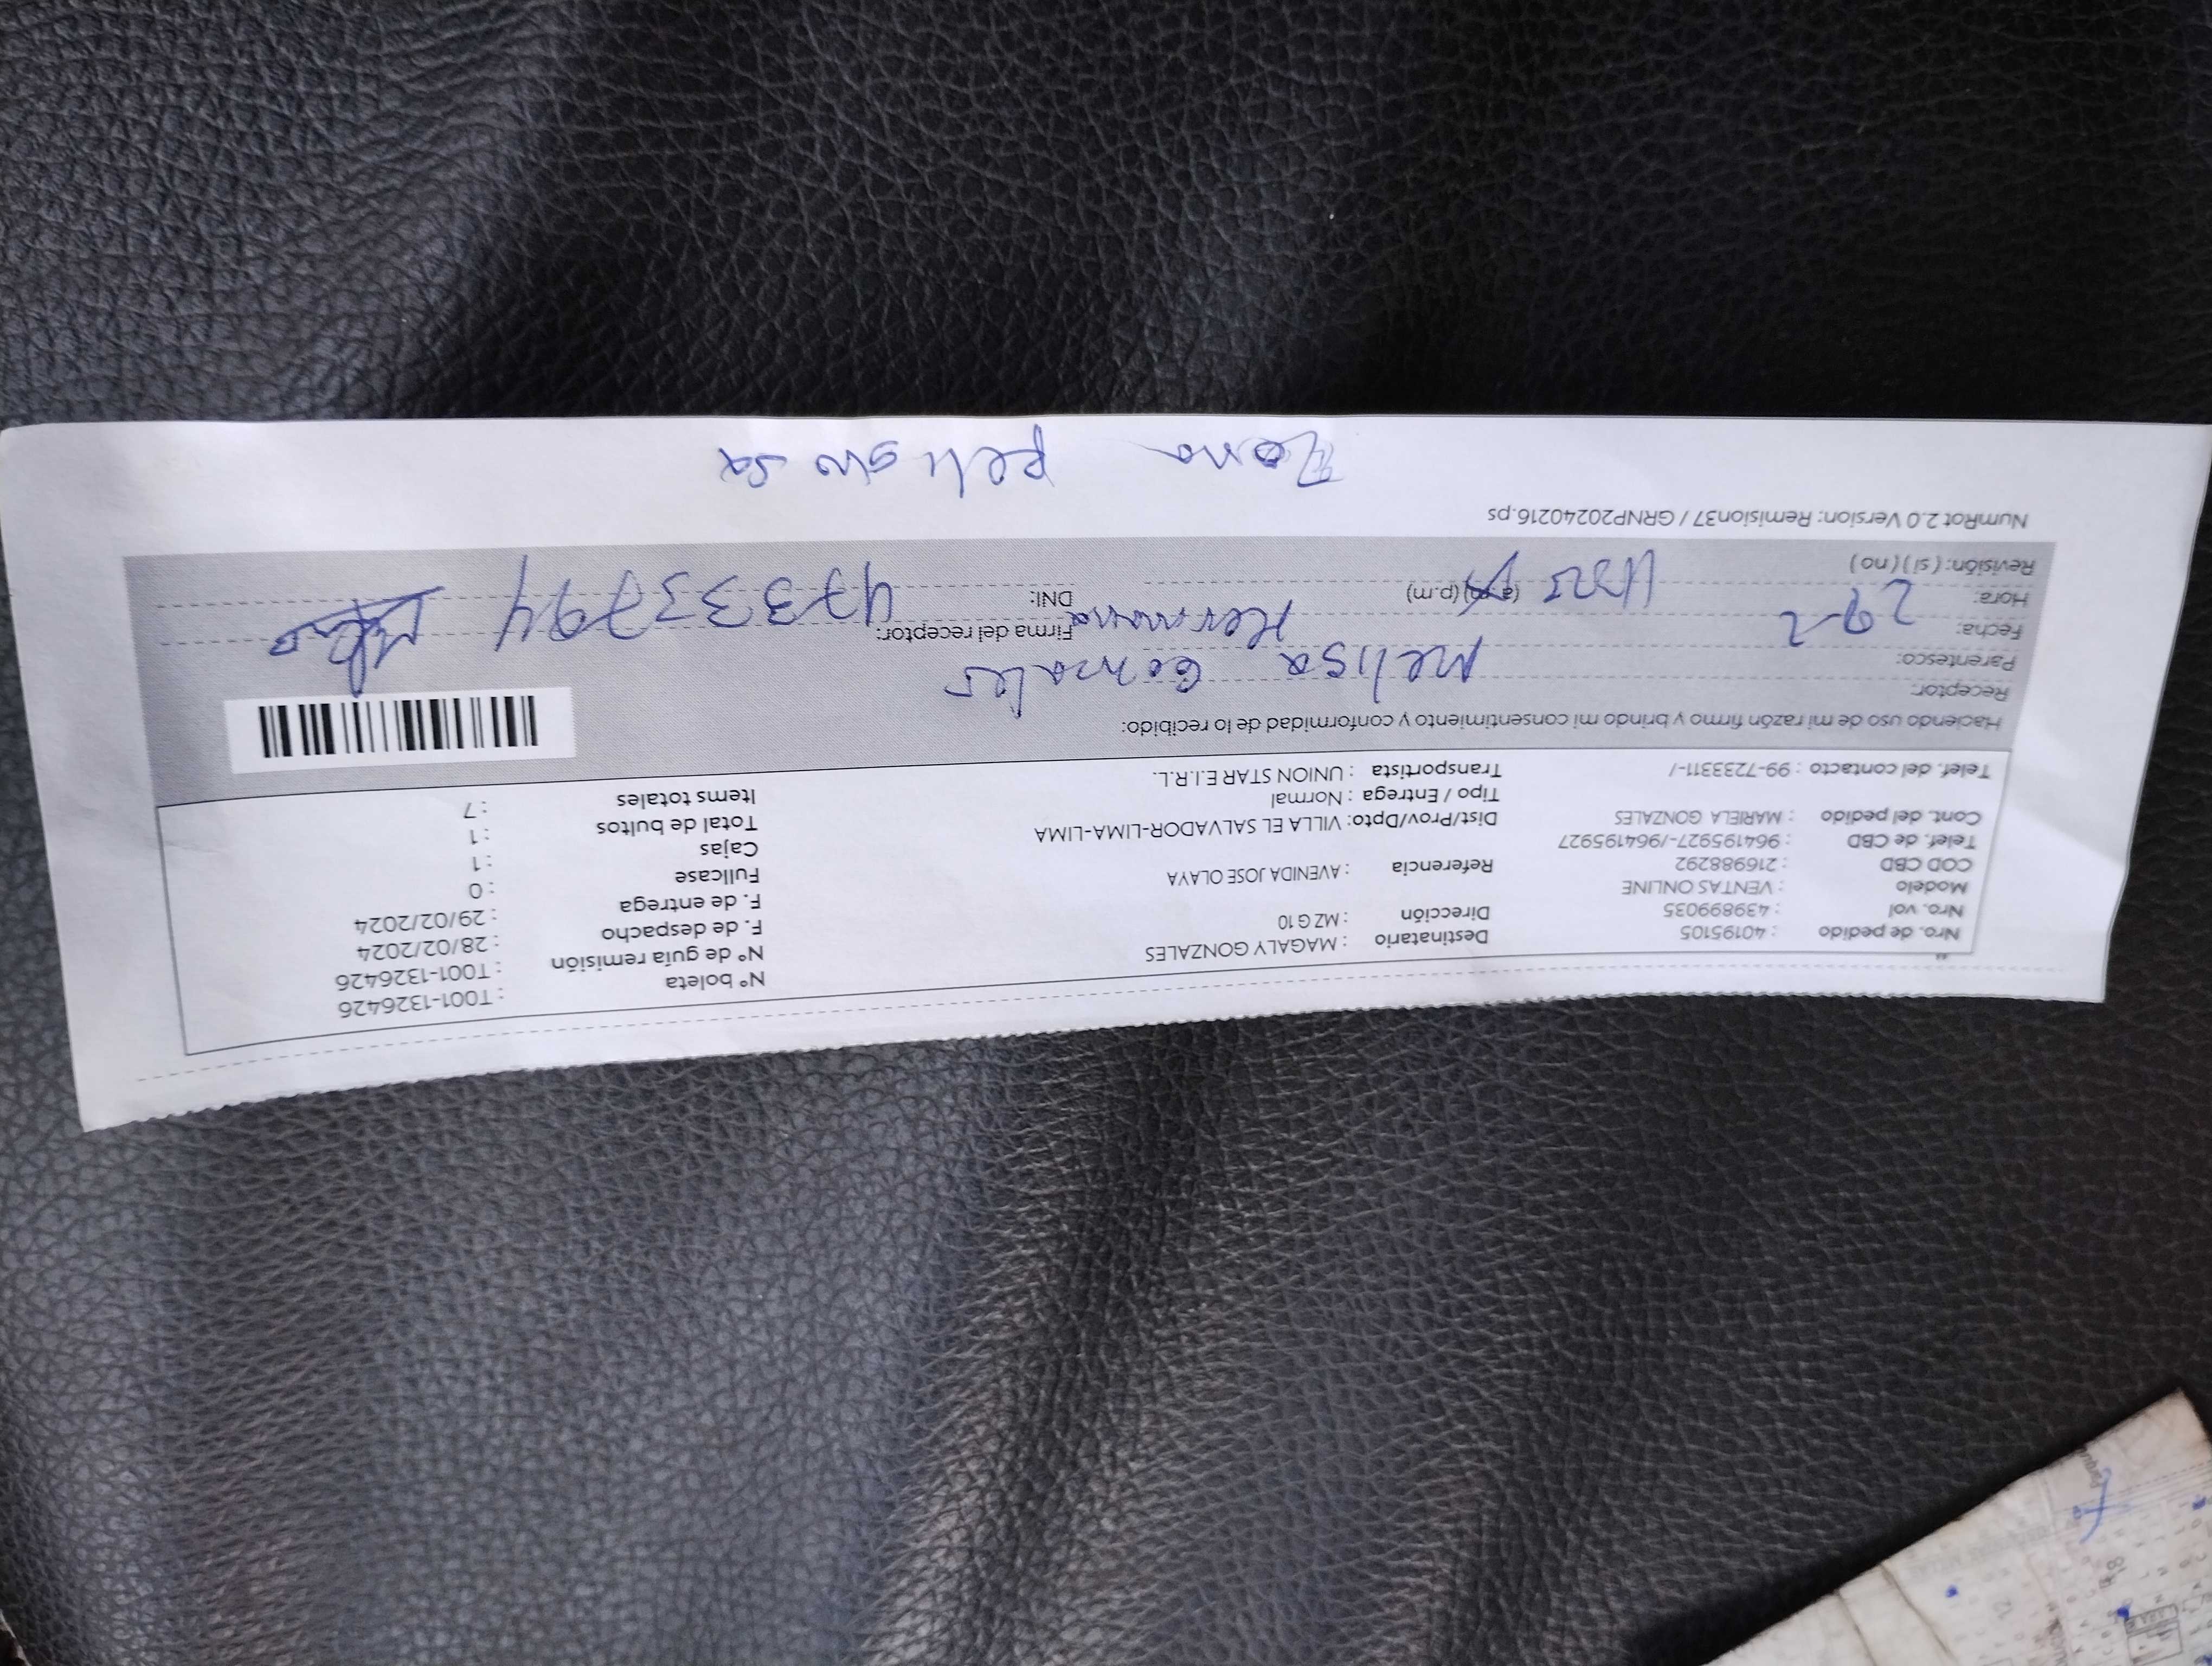 Nro. de pedido : 40195105 Destinatario : MAGALY GONZALES N° boleta : T001-1326426
Nro. vol : 439899035 Dirección : MZ G 10 N° de guía remisión : T001-1326426
Modelo : VENTAS ONLINE F. de despacho : 28/02/2024
COD CBD : 216988292 Referencia : AVENIDA JOSE OLAYA F. de entrega : 29/02/2024
Telef. de CBD : 964195927-/964195927 Fullcase : 0
Cont. del pedido : MARIELA GONZALES Dist/Prov/Dpto: VILLA EL SALVADOR-LIMA-LIMA Cajas : 1
Tipo / Entrega : Normal Total de bultos : 1
Telef. del contacto : 99-7233311-/ Transportista : UNION STAR E.I.R.L. Items totales : 7
Haciendo uso de mi razón firmo y brindo mi consentimiento y conformidad de lo recibido:
Receptor: Melisa Gonzales
Parentesco: Hermana Firma del receptor:
Fecha: 29-2
Hora: (a.m)(p.m) DNI: 47333794
Revisión: ( si ) ( no )
NumRot 2.0 Version: Remision37 / GRNP20240216.ps
Zona peligrosa